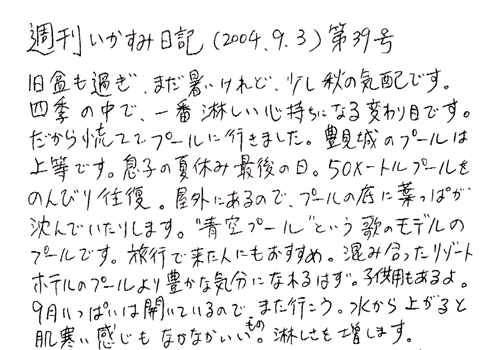 週刊いかすみ日記(2004.9.3)第39号
旧盆も過ぎ、まだ暑いけれど、少し秋の気配です。
四季の中で、一番淋しい心持ちになる変わり目です。
だから慌ててプールに行きました。豊見城のプールは
上等です。息子の夏休み最後の日。50メートルプールを
のんびり往復。屋外にあるので、プールの底に葉っぱが
沈んでいたりします。"青空プール"という歌のモデルの
プールです。旅行で来た人にもおすすめ。混み合ったリゾート
ホテルのプールより豊かな気分になれるはず。子供用もあるよ。
9月いっぱいは開いているので、また行こう。水から上がると
肌寒い感じもなかなかいいもの。淋しさを増します。